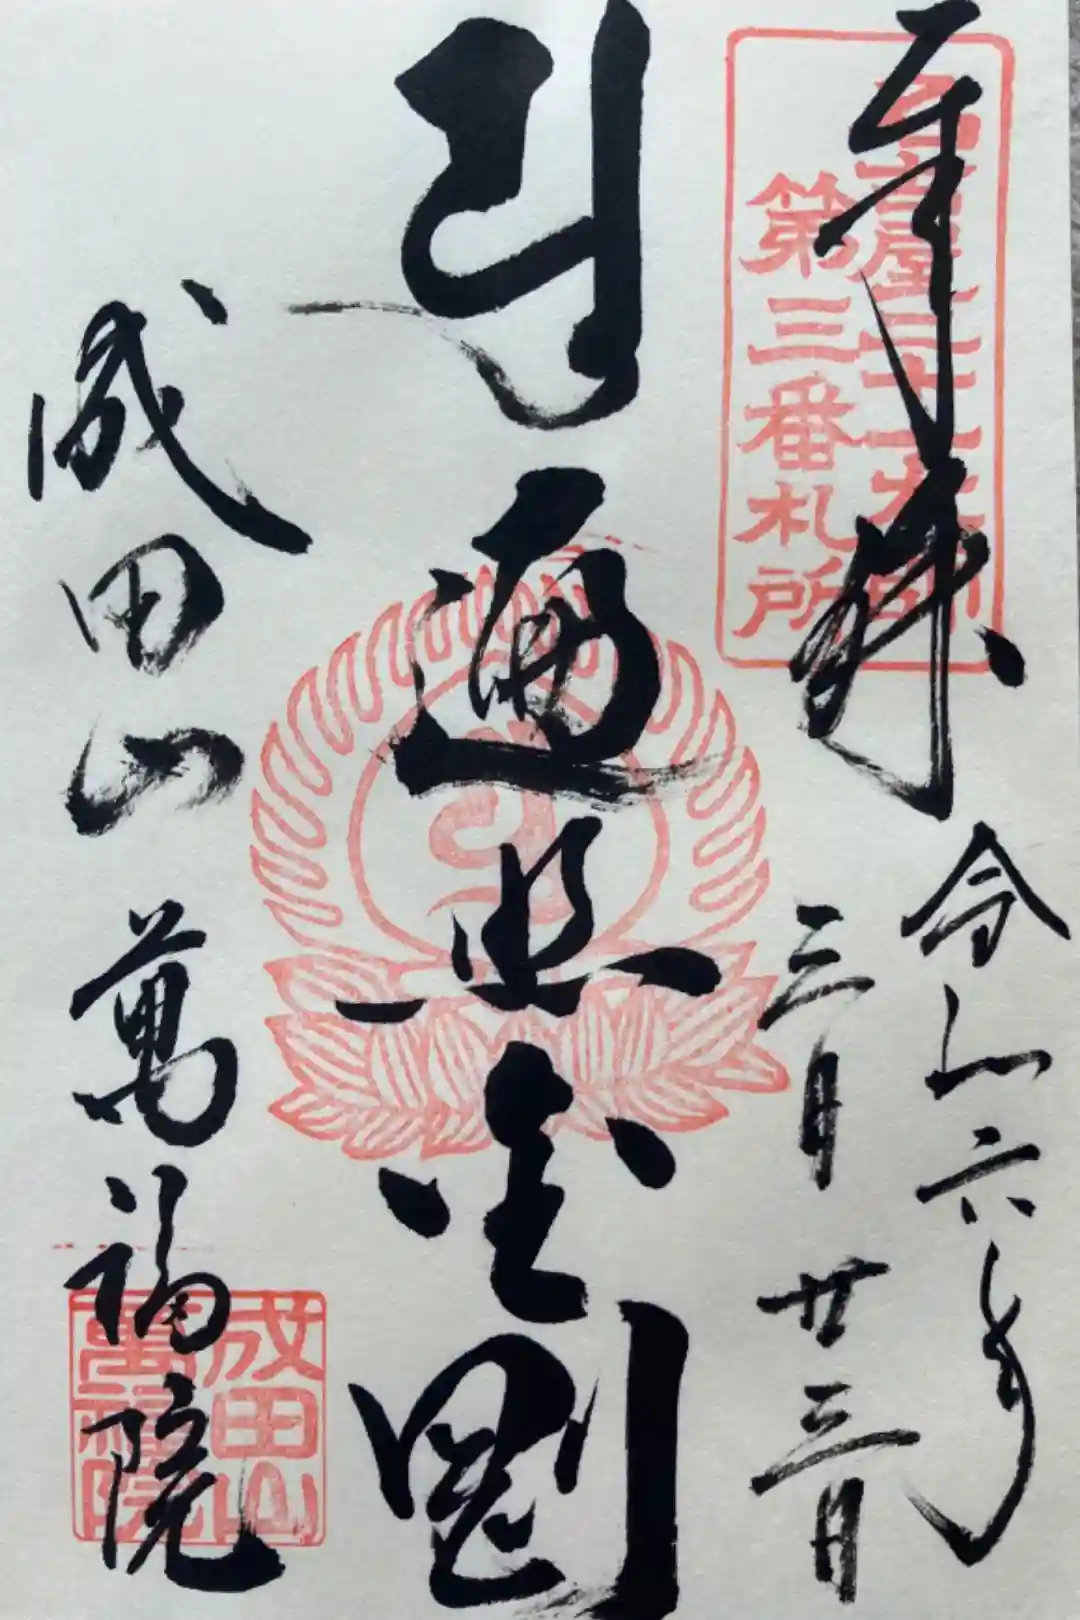 奉拝
名古屋二十一大師
第三番札所
令和六年
三月廿三日
遍照金剛
成田山 萬福院
成田山
萬福院